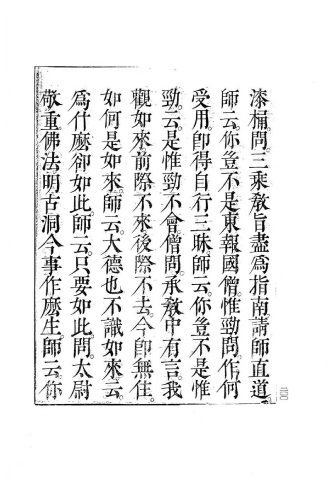 漆桶。問。三乘敎旨盡爲指南。請師直道
師云。你豈不是東報國僧惟勁。問。作何
受用。卽得自行三昧。師云。你豈不是惟
勁。云。是惟勁不會。僧問。承敎中有言。我
觀如來。前際不來。後際不去。今卽無住。
如何是如來。師云。大德也不識如來。云。
爲什麼卻如此。師云。只要如此。問。太尉
敬重佛法。明古洞今事作麼生。師云。你
二〇〇